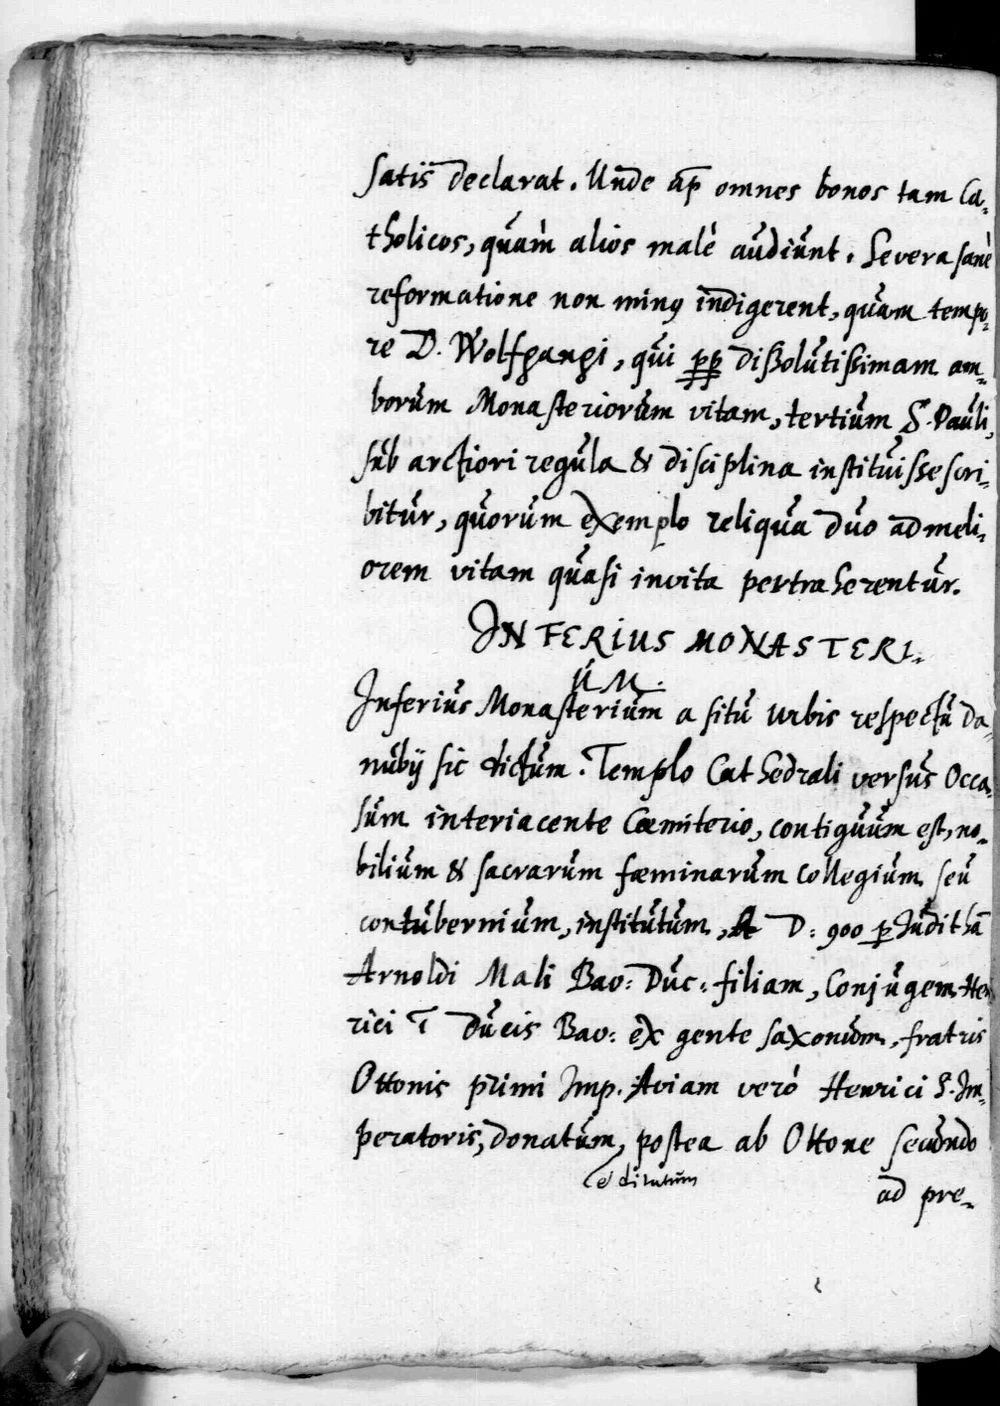 satis declarat. Unde ap̄ omnes bonos tam Ca-
tholicos, quàm alios malè audiunt. Severa sanè
reformatione non minꝰ indigerent, quam tempo-
re D. Wolfgangi, qui ꝓꝑ dißolutißimam am-
borum Monasteriorum vitam, tertium S. Pauli,
sub arctiori regula & disciplina instituisse scri-
bitur, quorum exemplo reliqua duo ad meli-
orem vitam quasi invita pertraherentur.
INFERIUS MONASTERI-
UM.
Inferius Monasterium a situ urbis respectu Da-
nubij sic dictum. Templo Cathedrali versus Occa-
sum interiacente Cœmiterio, contiguum est, no-
bilium & sacrarum fœminarum Collegium seu
contubernium, institutum, A D: 900 ꝑ Judithā
Arnoldi Mali Bav: Duc: filiam, Conjugem Hen
rici I Ducis Bav: ex gente saxonum, fratris
Ottonis primi Imp. Aviam verò Henrici S. Im-
peratoris, donatum, postea ab Ottone secundo
e ditatum
ad pre-